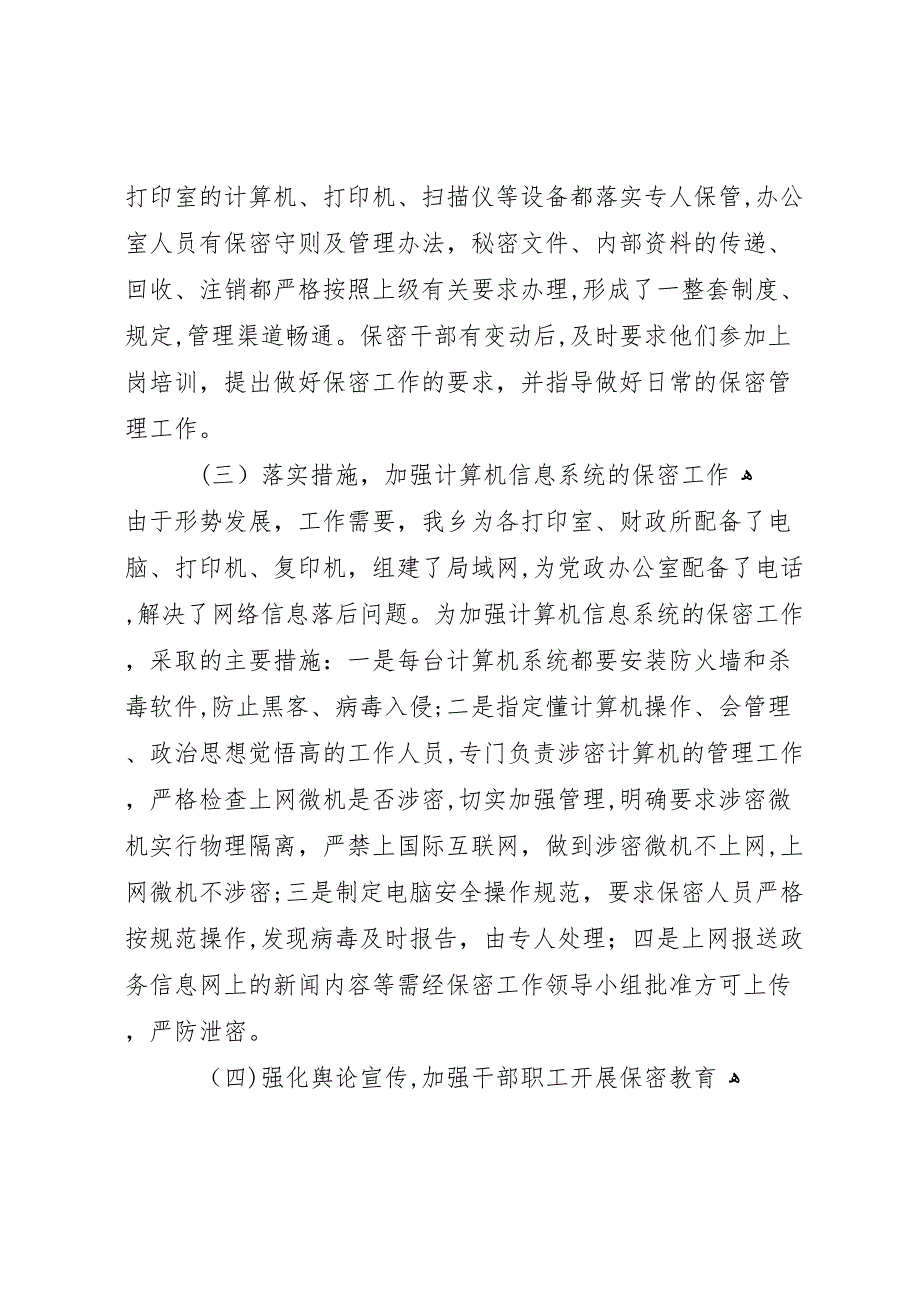 打印室的计算机、打印机、扫描仪等设备都落实专人保管,办公
室人员有保密守则及管理办法，秘密文件、内部资料的传递、
回收、注销都严格按照上级有关要求办理,形成了一整套制度、
规定,管理渠道畅通。保密干部有变动后,及时要求他们参加上
岗培训，提出做好保密工作的要求，并指导做好日常的保密管
理工作。
(三）落实措施，加强计算机信息系统的保密工作 ﻫ
由于形势发展，工作需要，我乡为各打印室、财政所配备了电
脑、打印机、复印机，组建了局域网,为党政办公室配备了电话
,解决了网络信息落后问题。为加强计算机信息系统的保密工作
，采取的主要措施：一是每台计算机系统都要安装防火墙和杀
毒软件,防止黑客、病毒入侵;二是指定懂计算机操作、会管理
、政治思想觉悟高的工作人员,专门负责涉密计算机的管理工作
，严格检查上网微机是否涉密,切实加强管理,明确要求涉密微
机实行物理隔离，严禁上国际互联网，做到涉密微机不上网,上
网微机不涉密;三是制定电脑安全操作规范，要求保密人员严格
按规范操作,发现病毒及时报告，由专人处理；四是上网报送政
务信息网上的新闻内容等需经保密工作领导小组批准方可上传
，严防泄密。
（四)强化舆论宣传,加强干部职工开展保密教育 ﻫ